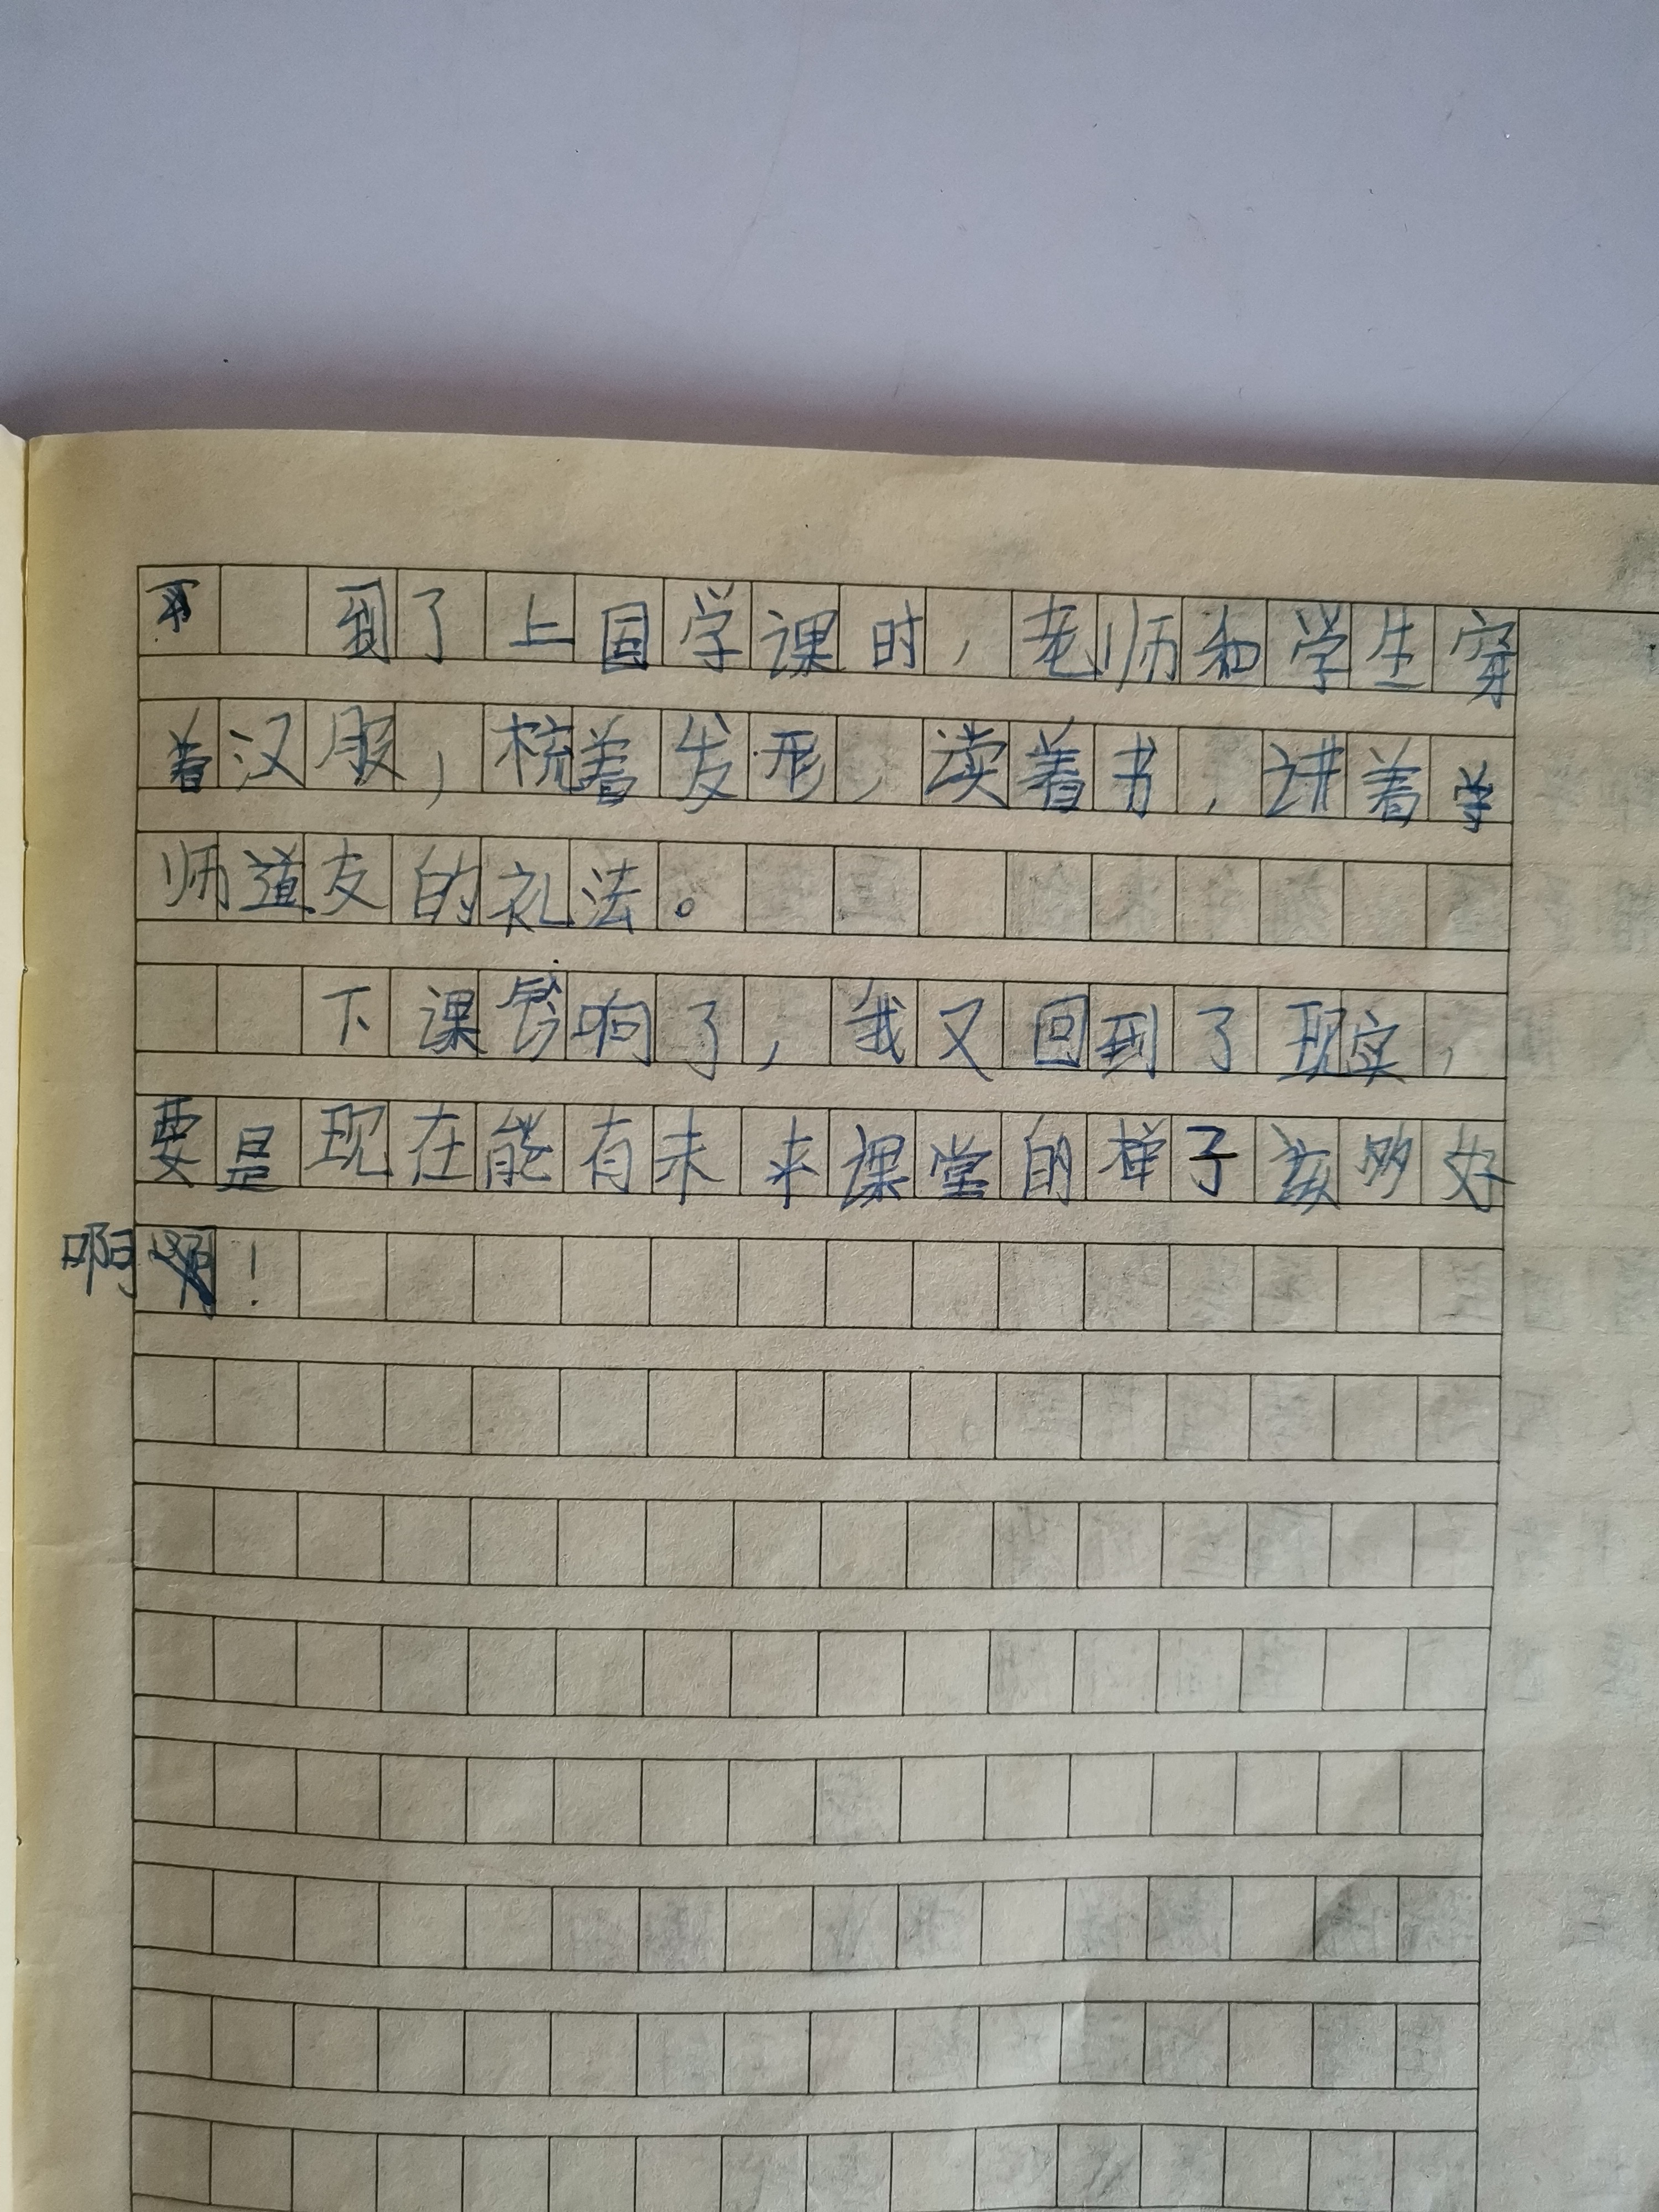 到了上国学课时，老师和学生穿
着汉服，梳着发形，读着书，讲着学
师道友的礼法。
下课铃响了，我又回到了现实，
要是现在能有未来课堂的样子该多好
啊！